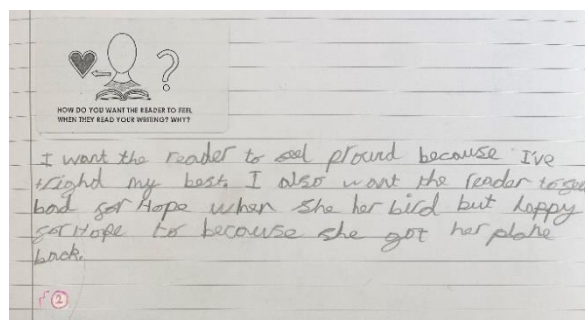 HOW DO YOU WANT THE READER TO FEEL
WHEN THEY READ YOUR WRITING? WHY?
I want the reader to feel pround because I've
trighd my best. I also want the reader to feel
bad for Hope when she her bird but happy
for Hope to because she got her plane
back.
2